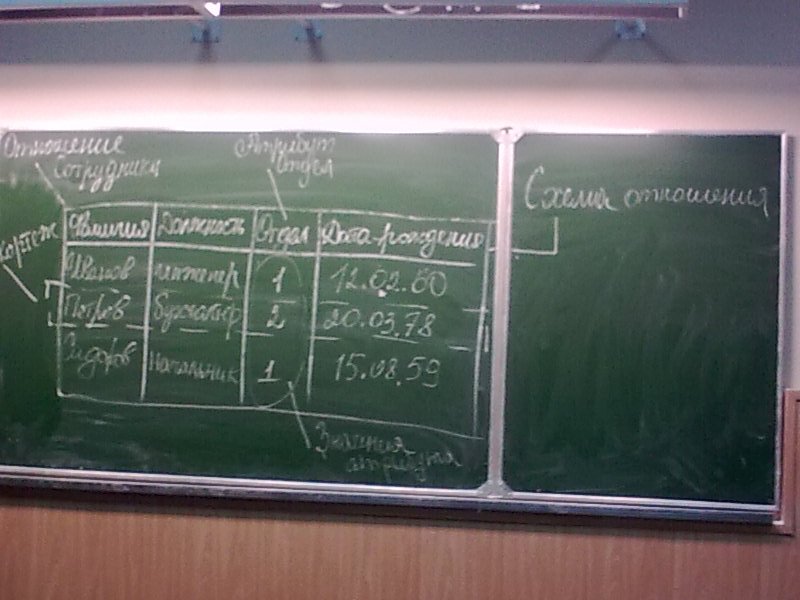 Отношение
Сотрудники
Атрибут
Отдел
Схема отношения
Кортеж
Фамилия Должность Отдел Дата рождения
Иванов инженер 1 12.02.60
Петров бухгалтер 2 20.03.78
Сидоров начальник 1 15.08.59
Значения
атрибута